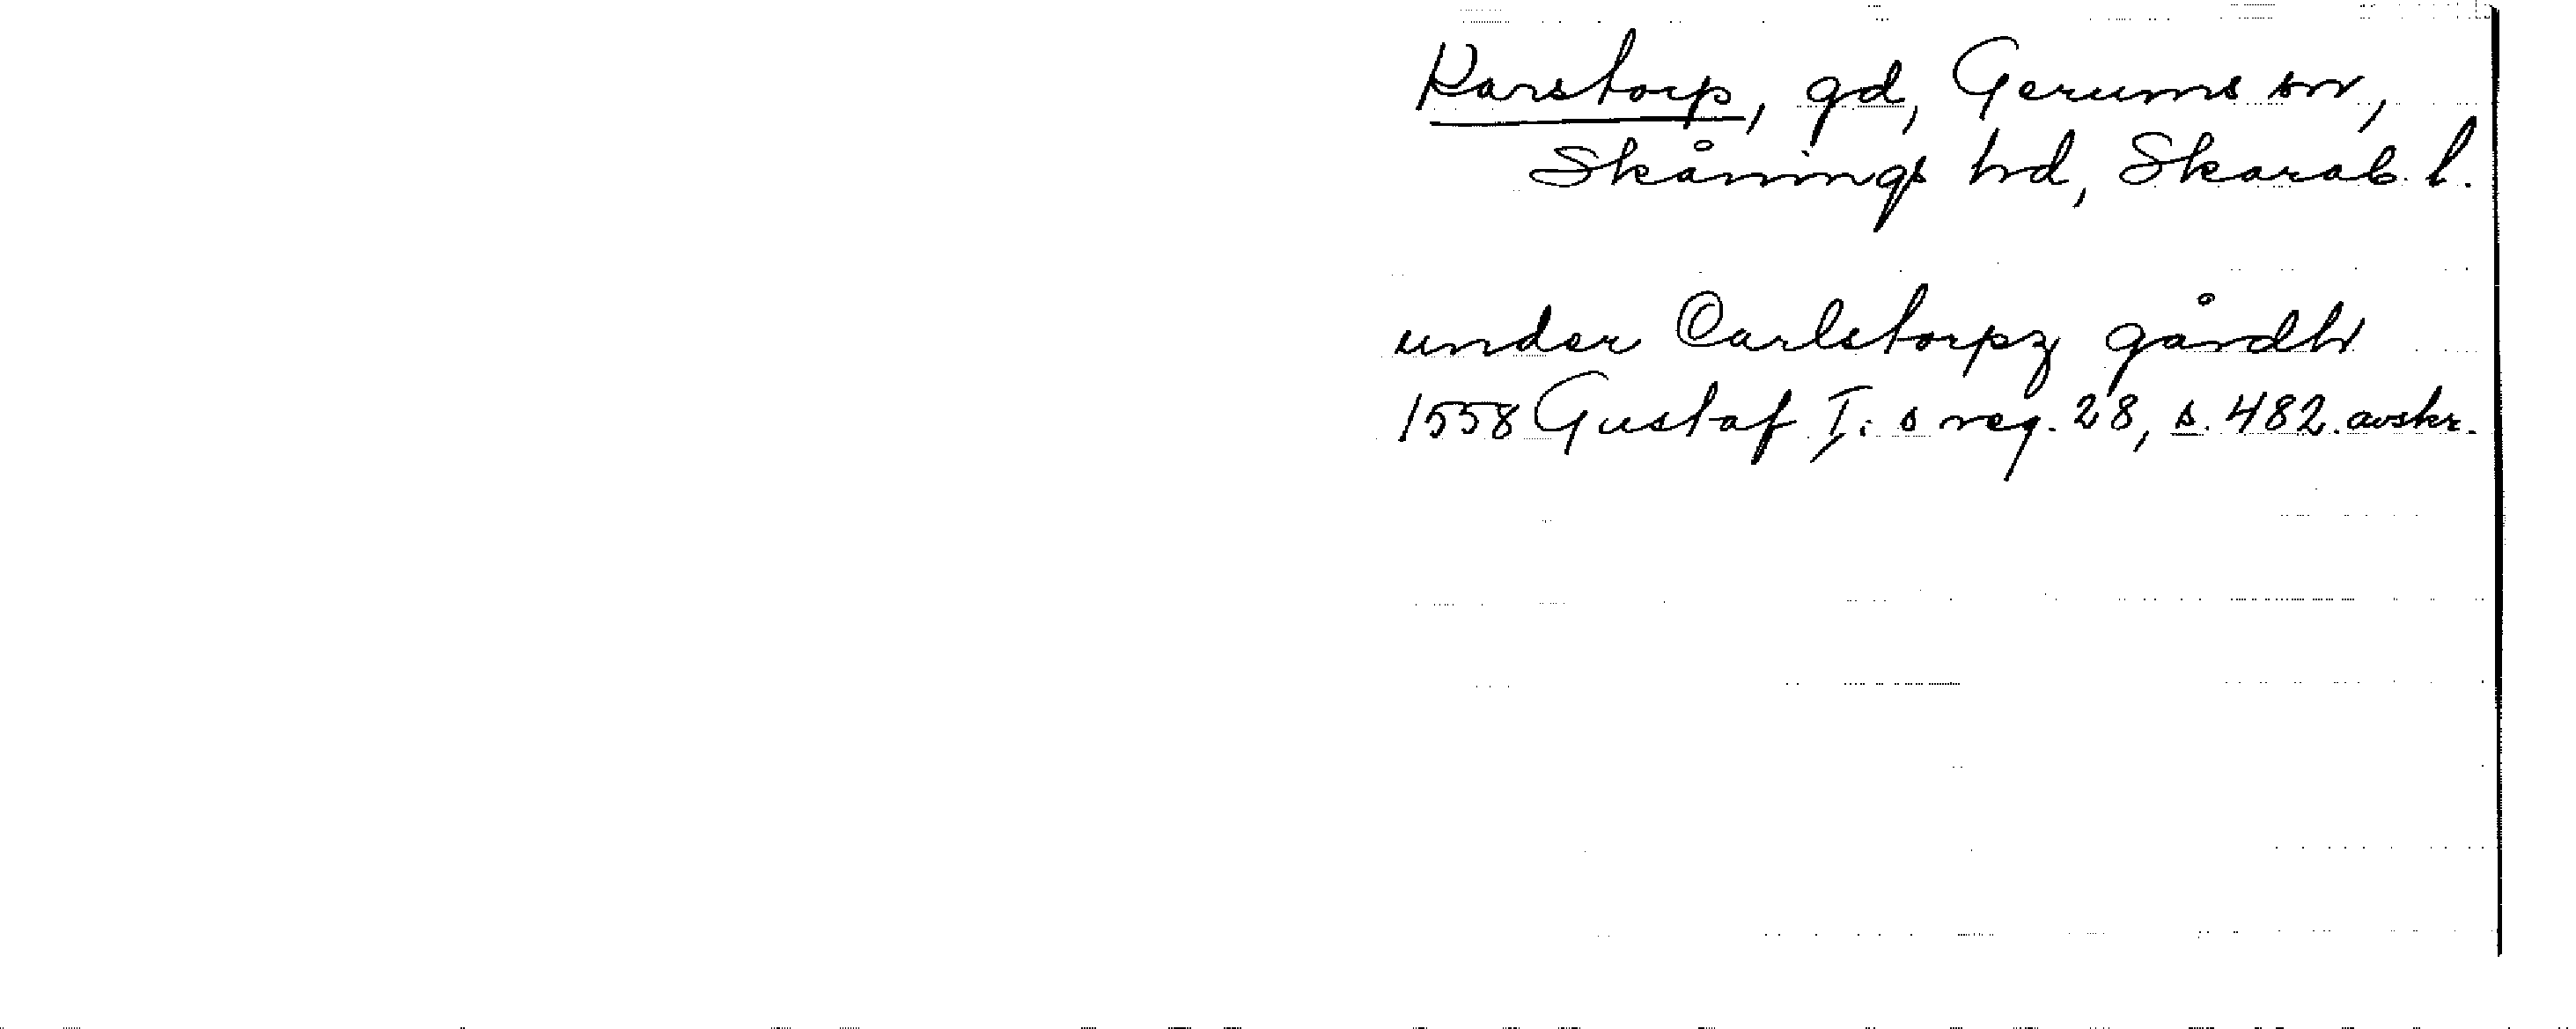 Karstorp, gd, Gerums sn,
Skånings hd, Skarab. l.
under Carlstorpz gårdh
1558 Gustaf I:s reg. 28, s. 482. avskr.